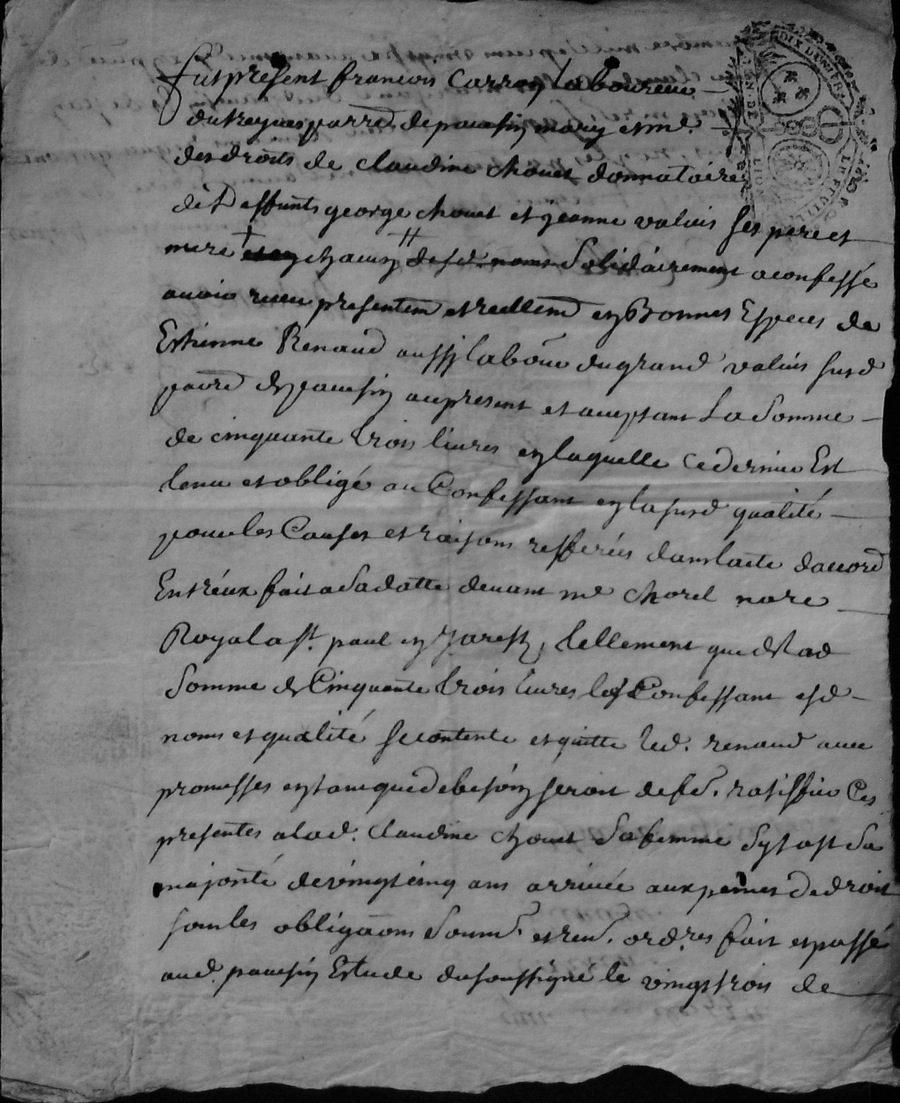 Fut present francois Carra laboureur
parre. de pauesin mary et me.
des droits de claudine chouet donnataire
de Deffunts george chouet et jeanne valuis ses pere et
mere chacun de sd. noms Solidairement a confessé
avoir receu presentem et reellem en Bonnes Especes de
Estienne Renaud aussi labou du grand valuis susd
parre de pauesin au present et aceptant La Somme
de cinquante trois liures en laquelle ce dernier Est
tenu et obligé au Confessant en la susd qualité
pour les Causes et raisons refferées dans lacte daccord
Entréux fait a sa datte deuant me chorel nore
Royal a st. paul en Jarest, tellement que de lad
Somme de Cinquante trois liures le Confessant esd
noms et qualité se contente et quitte led. renaud auec
promesses en tant que de besoin seroit de fe. ratiffier Ces
presentes a lad. Claudine chouet sa femme sa
majorité de vingt cinq ans arriuée aux peines de droit
sous les obligaons soum. et ren. ord.res fait et passé
aud. pauesin Estude du soussigné le vingt trois de
DIX DENIERS
LE FEUILL
LION